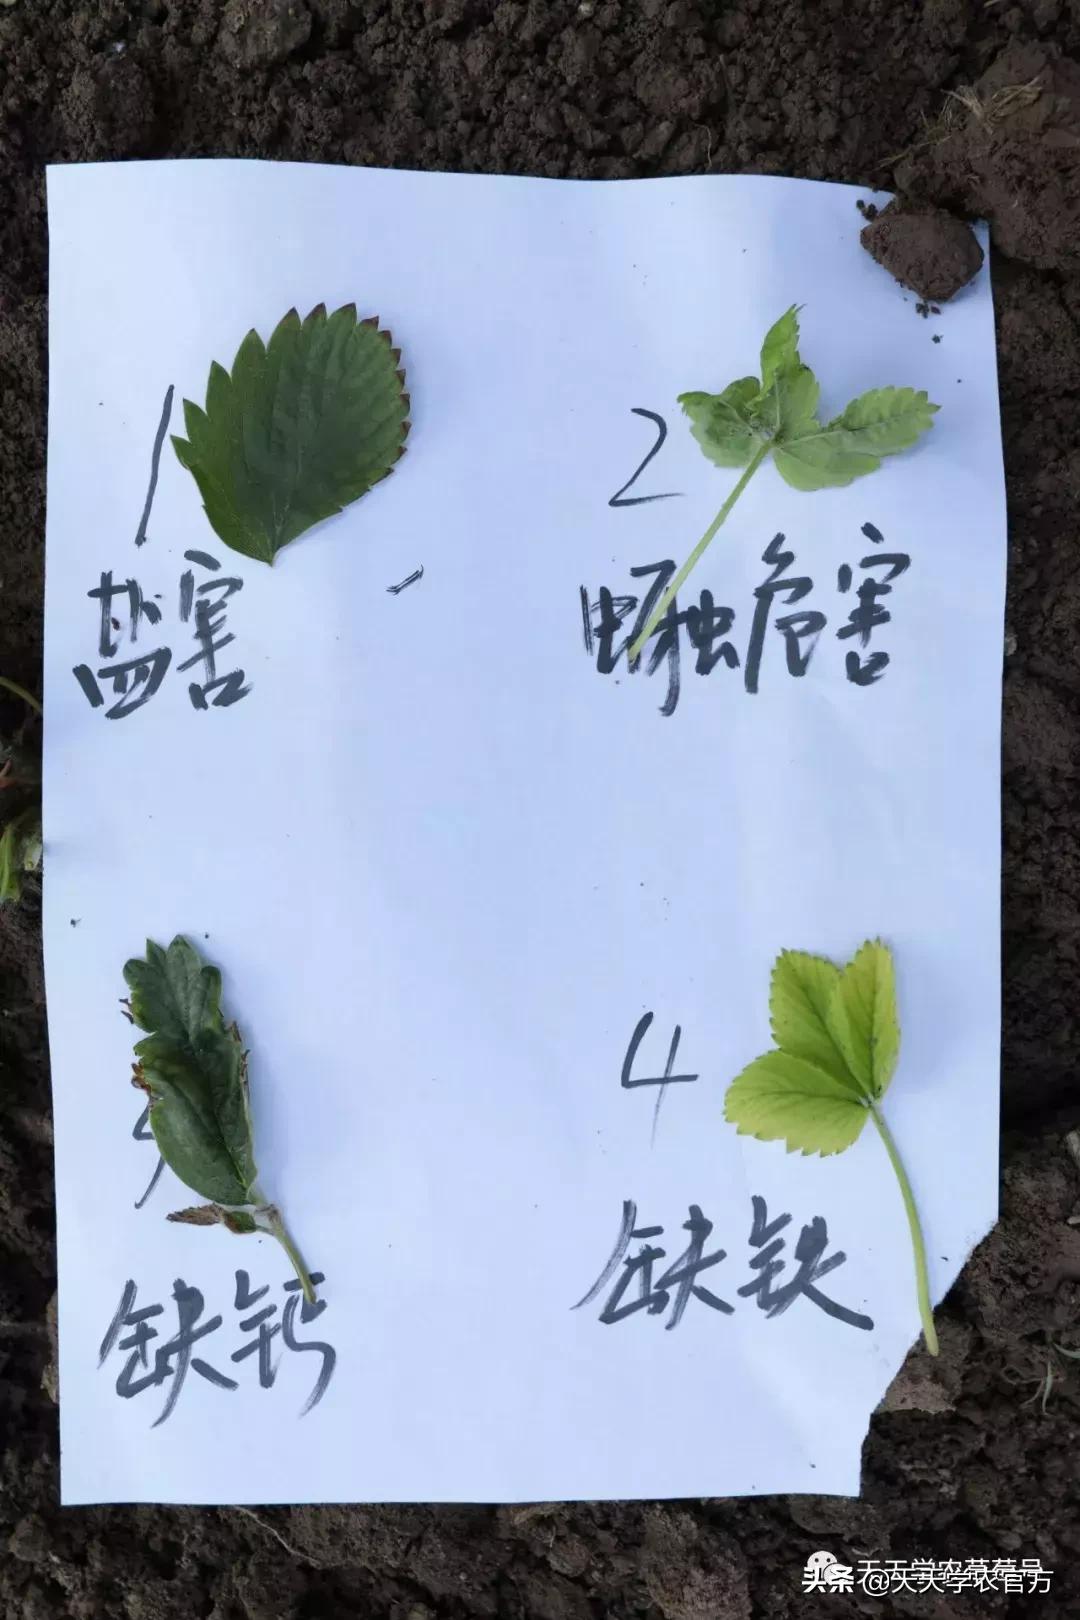 1
盐害
2
蚜虫危害
3
缺钙
4
缺铁
天天学农莓莓号
头条@天天学农官方